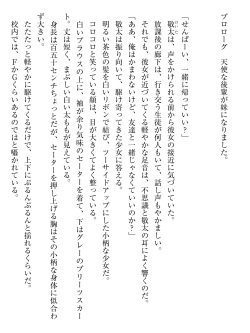 プロローグ　天使な後輩が妹になりました。
「せんぱーい、一緒に帰っていい？」
敬太は、声をかけられる前から彼女の接近に気づいていた。
放課後の廊下は、行き交う生徒が何人もいて、話し声もやかましい。
それでも、彼女が近づいてくる軽やかな足音は、不思議と敬太の耳によく響くのだ。
「ああ、俺はかまわないけど、友達と一緒じゃなくていいのか？」
敬太は振り向いて、駆け寄ってきた少女に答える。
明るい茶色の髪を白いリボンで結び、ツーサイドアップにした小柄な少女だ。
コロコロと笑っている顔は、目が大きくてよく整っている。
白いブラウスの上に、袖が余り気味のセーターを着て、下はグレーのプリーツスカー
ト。丈は短く、まぶしい白い太ももが見えている。
身長は百五十センチちょっとだが、セーターを押し上げる胸はその小柄な身体に似合わ
ず大きい。
たたたっと軽やかに駆けてくるだけで、上下にぷるんぷるんと揺れるくらいだ。
校内では、ＦかＧくらいあるのではと囁かれている。